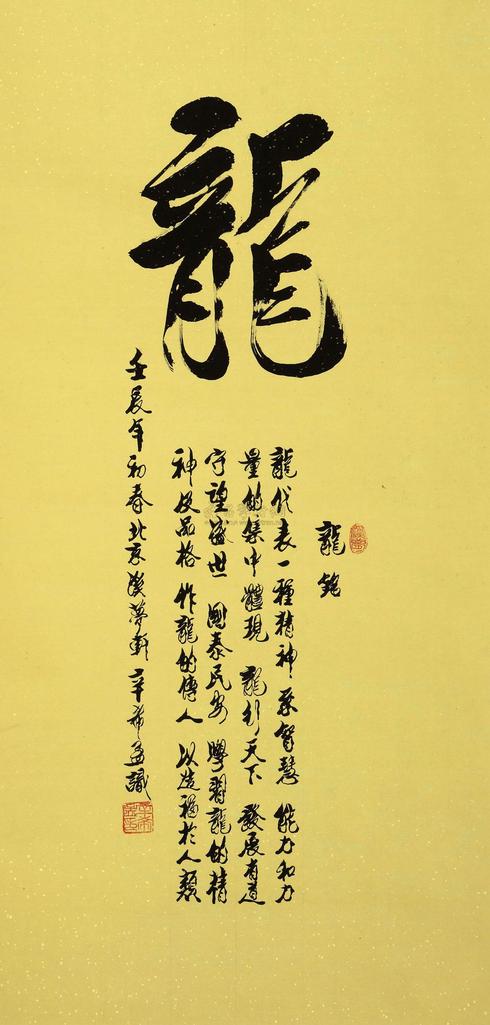 龍
龍銘
龍代表一種精神 系智慧 能力和力
量的集中體現 龍行天下 發展有道
守望盛世 國泰民安 學習龍的精
神及品格 作龍的傳人 以造福於人類
壬辰年初春北京漢夢軒 辛希孟識